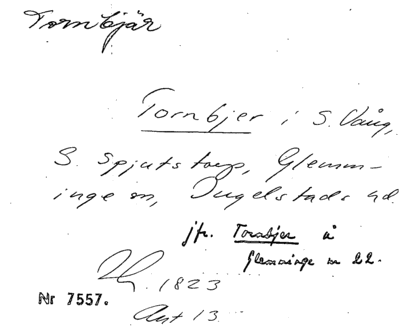 Tornbjär
Tornbjer i S. Vång,
S. Spjutstorp, Glemm-
inge sn, Ingelstads hd.
jfr. Tornbjer å
Glemminge nr 22.
1823
Nr 7557.
Akt 13